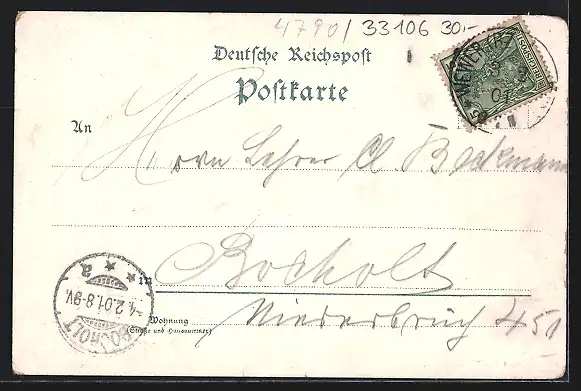 4790/33106 30,-
Deutsche Reichspost
Postkarte
An
Herrn Lehrer Cl Beckmann
in Bocholt
Wohnung
(Straße und Hausnummer)
Niederbruch 451
REICHSPOST
WEWER
3 2 01
BOCHOLT
4.2.01.8-9V.
* * a